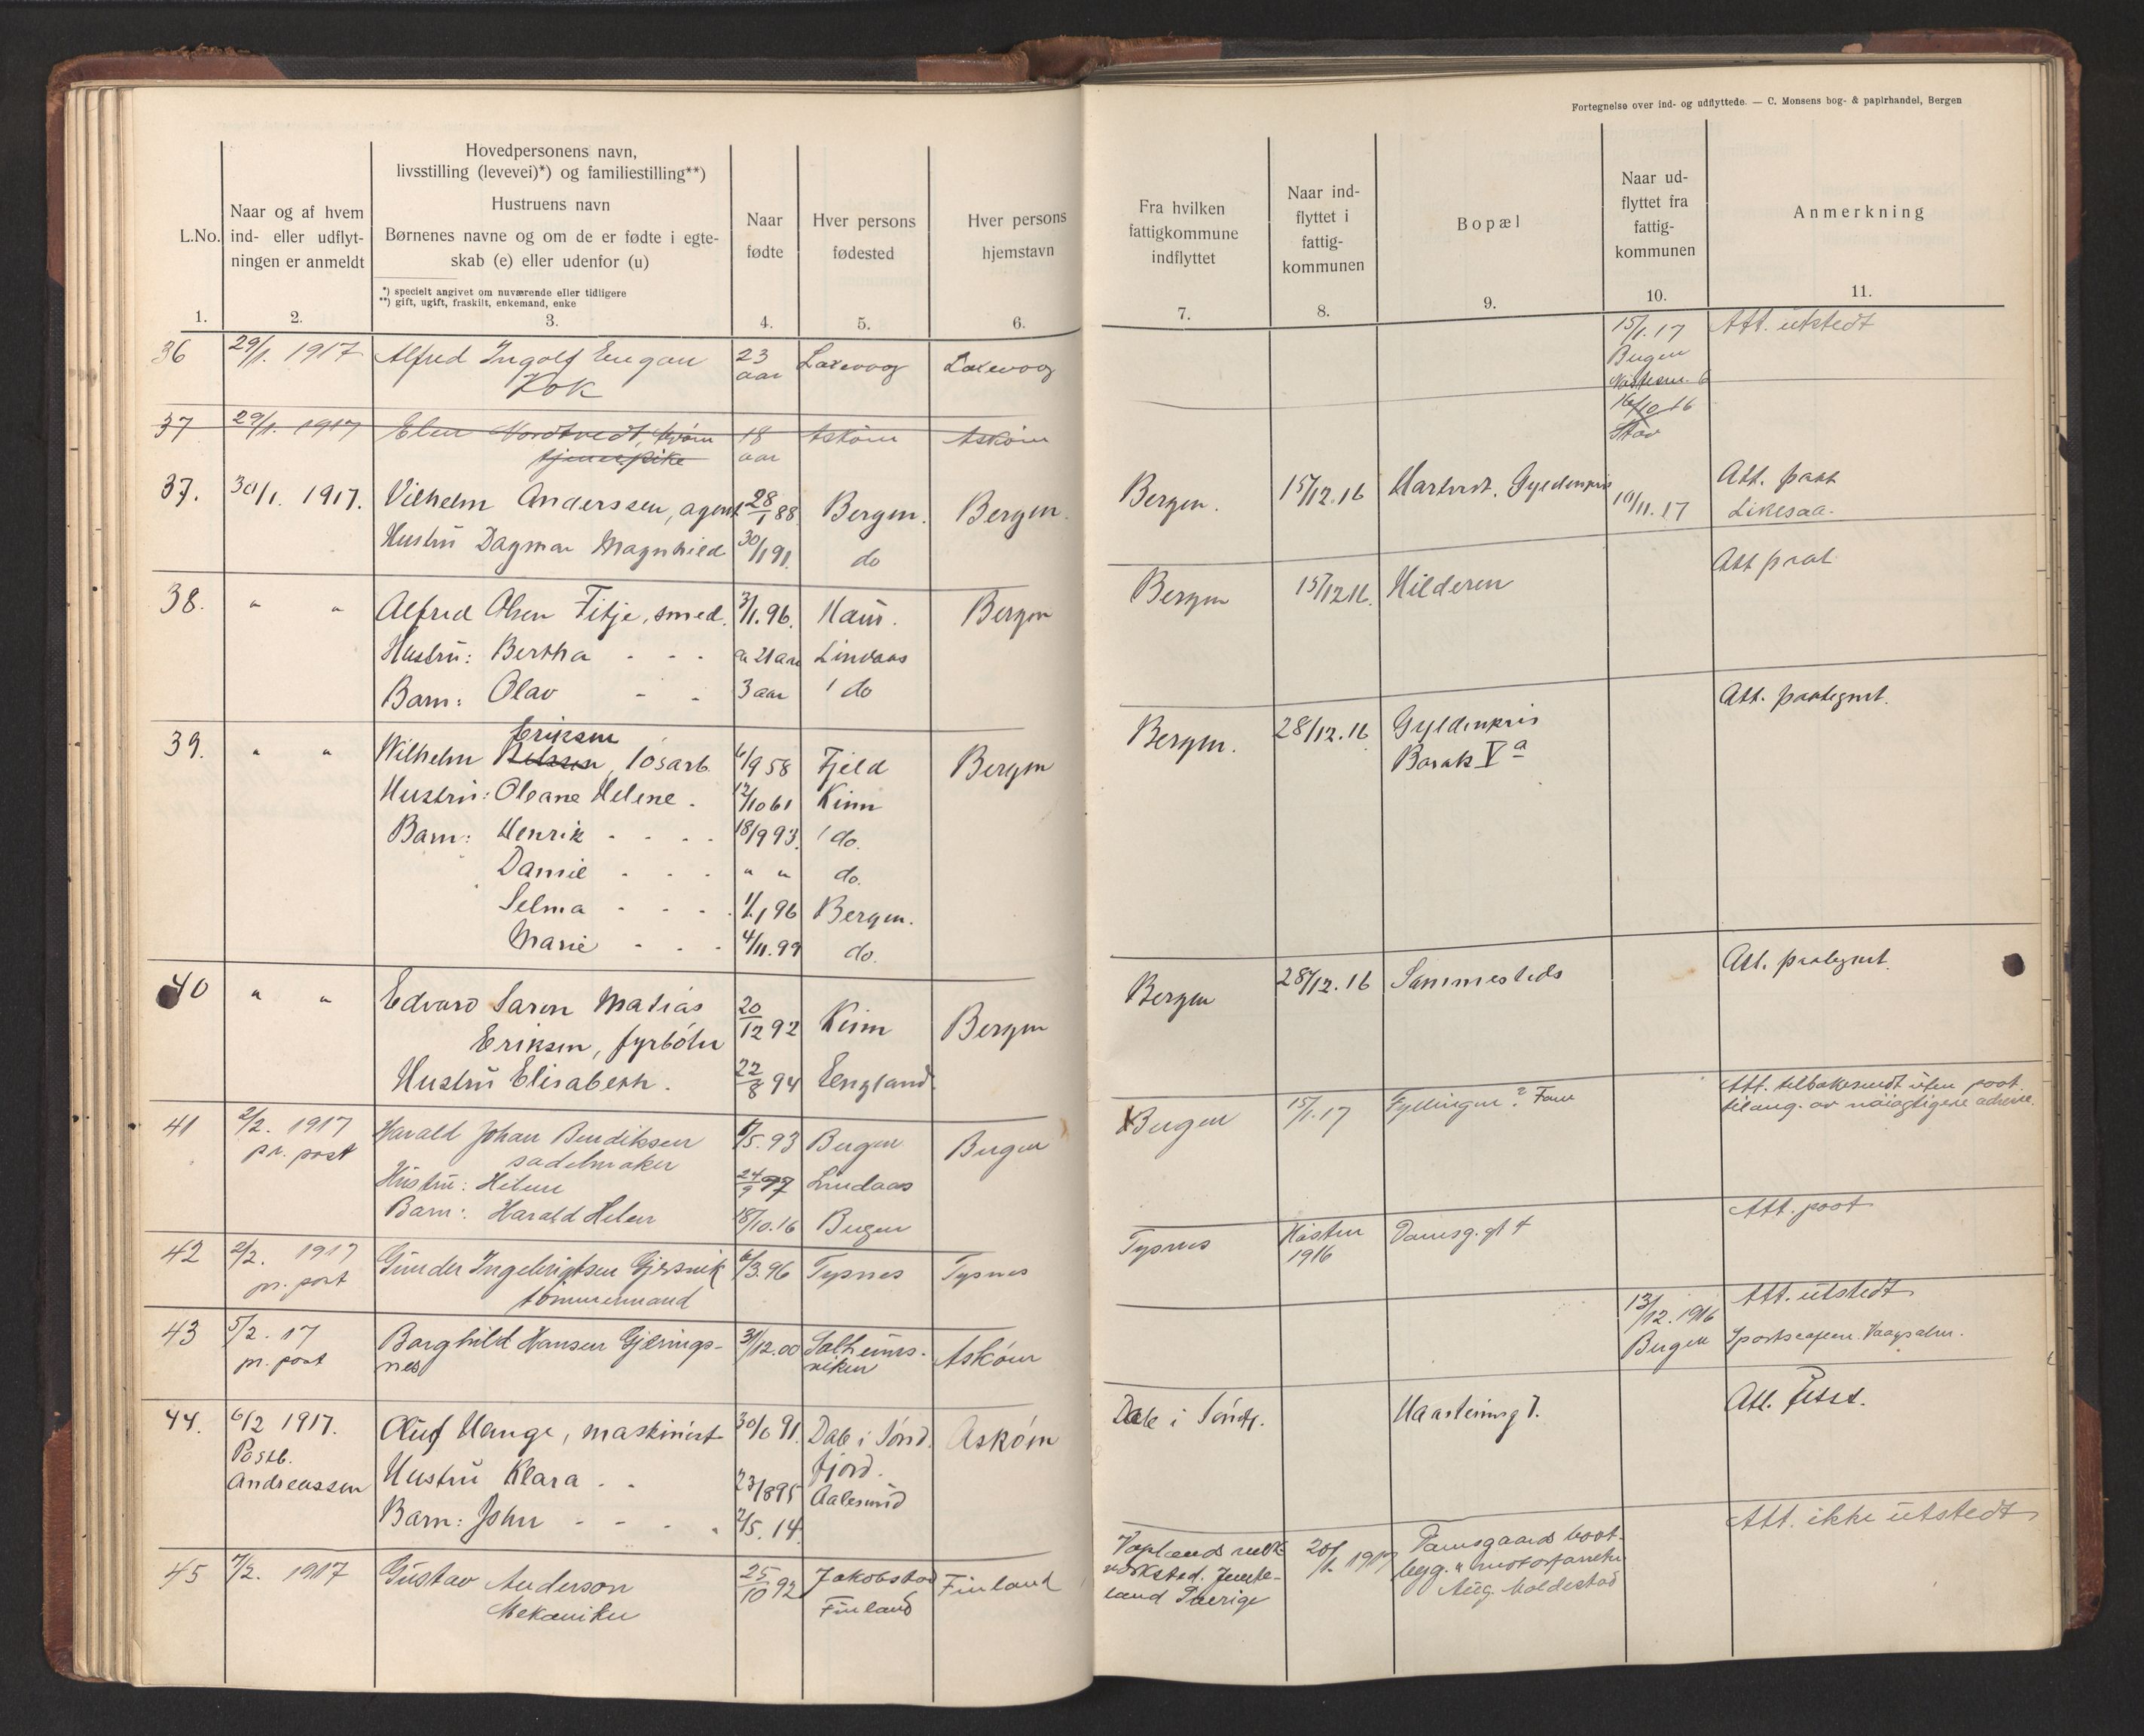 Fortegnelse over ind- og udflyttede. — C. Monsens bog- & papirhandel, Bergen
L.No.
1.
Naar og af hvem
ind- eller udflyt-
ningen er anmeldt
2.
Hovedpersonens navn,
livsstilling (levevei)*) og familiestilling**)
Hustruens navn
Børnenes navne og om de er fødte i egte-
skab (e) eller udenfor (u)
*) specielt angivet om nuværende eller tidligere
**) gift, ugift, fraskilt, enkemand, enke
3.
Naar
fødte
4.
Hver persons
fødested
5.
Hver persons
hjemstavn
6.
Fra hvilken
fattigkommune
indflyttet
7.
Naar ind-
flyttet i
fattig-
kommunen
8.
Bopæl
9.
Naar ud-
flyttet fra
fattig-
kommunen
10.
Anmerkning
11.
36 29/1. 1917 Alfred Ingolf Engan 23 Laxevog Laxevog 15/1.17 Att. utstedt
Kok aar Bergen
37 29/1. 1917 Elen Nordtvedt, 18 Askøen Askøen 16/10 16
tjenespike aar
37. 30/1. 1917. Vilhelm Anderssen, agent 28/1 88 Bergen. Bergen. Bergen. 15/12.16 Gyldenpris 10/11.17 Att. past
Likesaa.
Hustru Dagmar Magnhild 30/1 91. do
38. " " Alfred Olsen Fitje, smed. 3/1.96. Haus. Bergen Bergen 15/12 16. Hilderen Att past
Hustru: Bertha - - - ca 21 aar Lindaas
Barn: Olav - - 3 aar do
39. " " Eriksen
Wilhelm Nilssen, løsarb. 6/9 58 Fjeld Bergen Bergen. 28/12.16 Gyldenpris Att. paategnet.
Barak V a
Hustru: Oleane Helene. 12/10 61 Kinn
Barn: Henrik - - - - 18/9 93. do.
Daniel - - - " " do.
Selma - - - - 1/1 96 Bergen.
Marie - - - 4/11.99 do.
40 " " Edvard Saron Matias 20/12 92 Kinn Bergen Bergen 28/12.16 Sammesteds Att. paategnet.
Eriksen, fyrbøter
Hustru Elisabeth. 22/8 94 England
41 2/2. 1917 Harald Johan Bendiksen 17/5.93 Bergen Bergen Bergen 15/1.17 Fyllingen ? Att. tilbakesendt uten paat.
pr. post sadelmaker tilang. av nøiagtigere adresse.
Hustru: Helene 24/9 97 Lindaas
Barn: Harald Helen 18/10.16 Bergen
42 2/2. 1917 Gunder Ingebrigtsen Gjersvik 6/3.96 Tysnes Tysnes Tysnes Høsten Damsg.gt 4 Att. paat
pr. post tømmermand 1916
43 5/2. 17 Borghild Hansen Gjerings- 31/12.00 Solheims- Askøen 13/12.1916 Att. utstedt
pr. post nes viken Bergen
44. 6/2 1917. Oluf Hauge, maskinist 30/6 91. Dale i Sønd. Askøen Dale i Søndf. Haasteinsg 7. Att. utst.
Postb. fjord.
Andreassen Hustru Klara - - 23/8 95 Aalesund
Barn: John - - - - 2/5.14.
45 7/2. 1917 Gustav Anderson 25/10 92 Jakobstad Finland 20/1. 1917 Damsgaards baat- Att. ikke utstedt
Mekaniker Finland bygg. " motorfabrik
land Sverige Aug. Moldestad